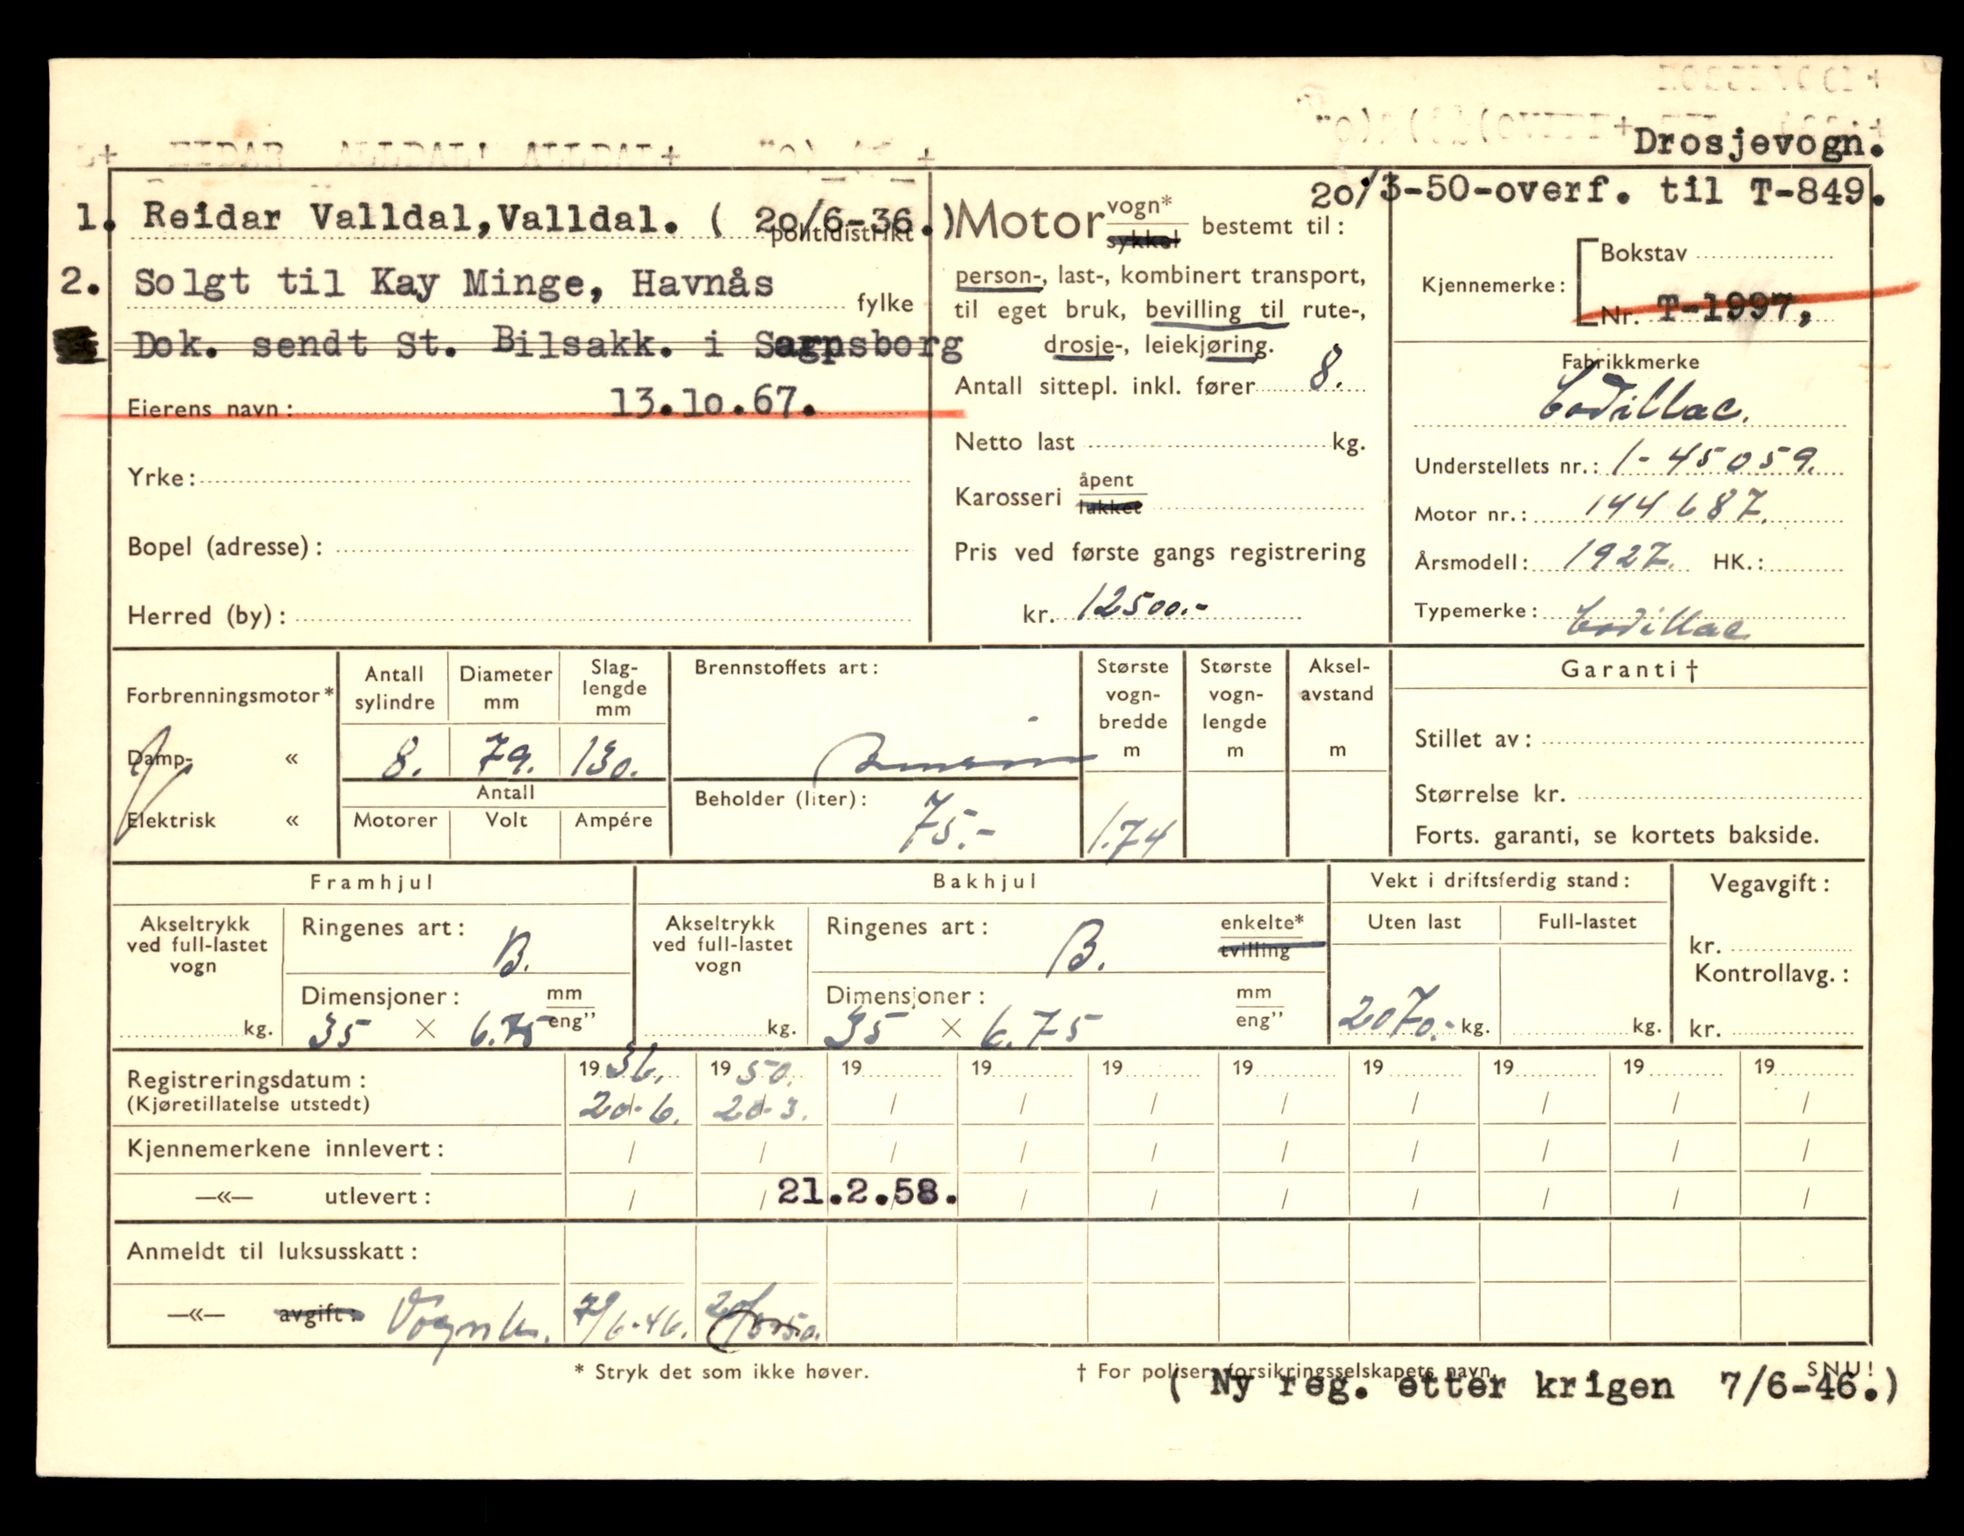 Drosjevogn.
20/3-50-overf. til T-849.
1. Reidar Valldal, Valldal. ( 20/6-36.)
politidistrikt
2. Solgt til Kay Minge, Havnås
fylke
Dok. sendt St. Bilsakk. i Sarpsborg
Eierens navn: 13.10.67.
Yrke:
Bopel (adresse):
Herred (by):
Motor vogn* sykkel bestemt til:
person-, last-, kombinert transport,
til eget bruk, bevilling til rute-,
drosje-, leiekjøring.
Antall sittepl. inkl. fører 8.
Netto last kg.
Karosseri åpent lukket
Pris ved første gangs registrering
kr. 12500.-
Kjennemerke: Bokstav
Nr. T-1997,
Fabrikkmerke
Cadillac.
Understellets nr.: 1-45059.
Motor nr.: 144687.
Årsmodell: 1927. HK.:
Typemerke: Cadillac
Forbrenningsmotor*
Damp- «
Elektrisk «
Antall sylindre
8.
Diameter mm
79.
Slaglengde mm
130.
Antall
Motorer Volt Ampére
Brennstoffets art:
Bensin
Beholder (liter): 75.-
Største vognbredde m
1.74
Største vognlengde m
Akselavstand m
Garanti †
Stillet av:
Størrelse kr.
Forts. garanti, se kortets bakside.
Framhjul
Akseltrykk ved full-lastet vogn
kg.
Ringenes art: B.
Dimensjoner: mm eng”
35 × 6.75
Bakhjul
Akseltrykk ved full-lastet vogn
kg.
Ringenes art: B. enkelte* tvilling
Dimensjoner: mm eng”
35 × 6.75
Vekt i driftsferdig stand:
Uten last Full-lastet
2070.- kg. kg.
Vegavgift:
kr.
Kontrollavg.:
kr.
Registreringsdatum: 1936. 1950. 19 19 19 19 19 19 19 19
(Kjøretillatelse utstedt) 20-6. 20-3. / / / / / / / /
Kjennemerkene innlevert: / / / / / / / / / /
—«— utlevert: / / 21.2.58. / / / / / / /
Anmeldt til luksusskatt:
—«— avgift: Vognk. 7/6-46.
* Stryk det som ikke høver.
† For polisen forsikringsselskapets navn.
SNU!
( Ny reg. etter krigen 7/6-46.)